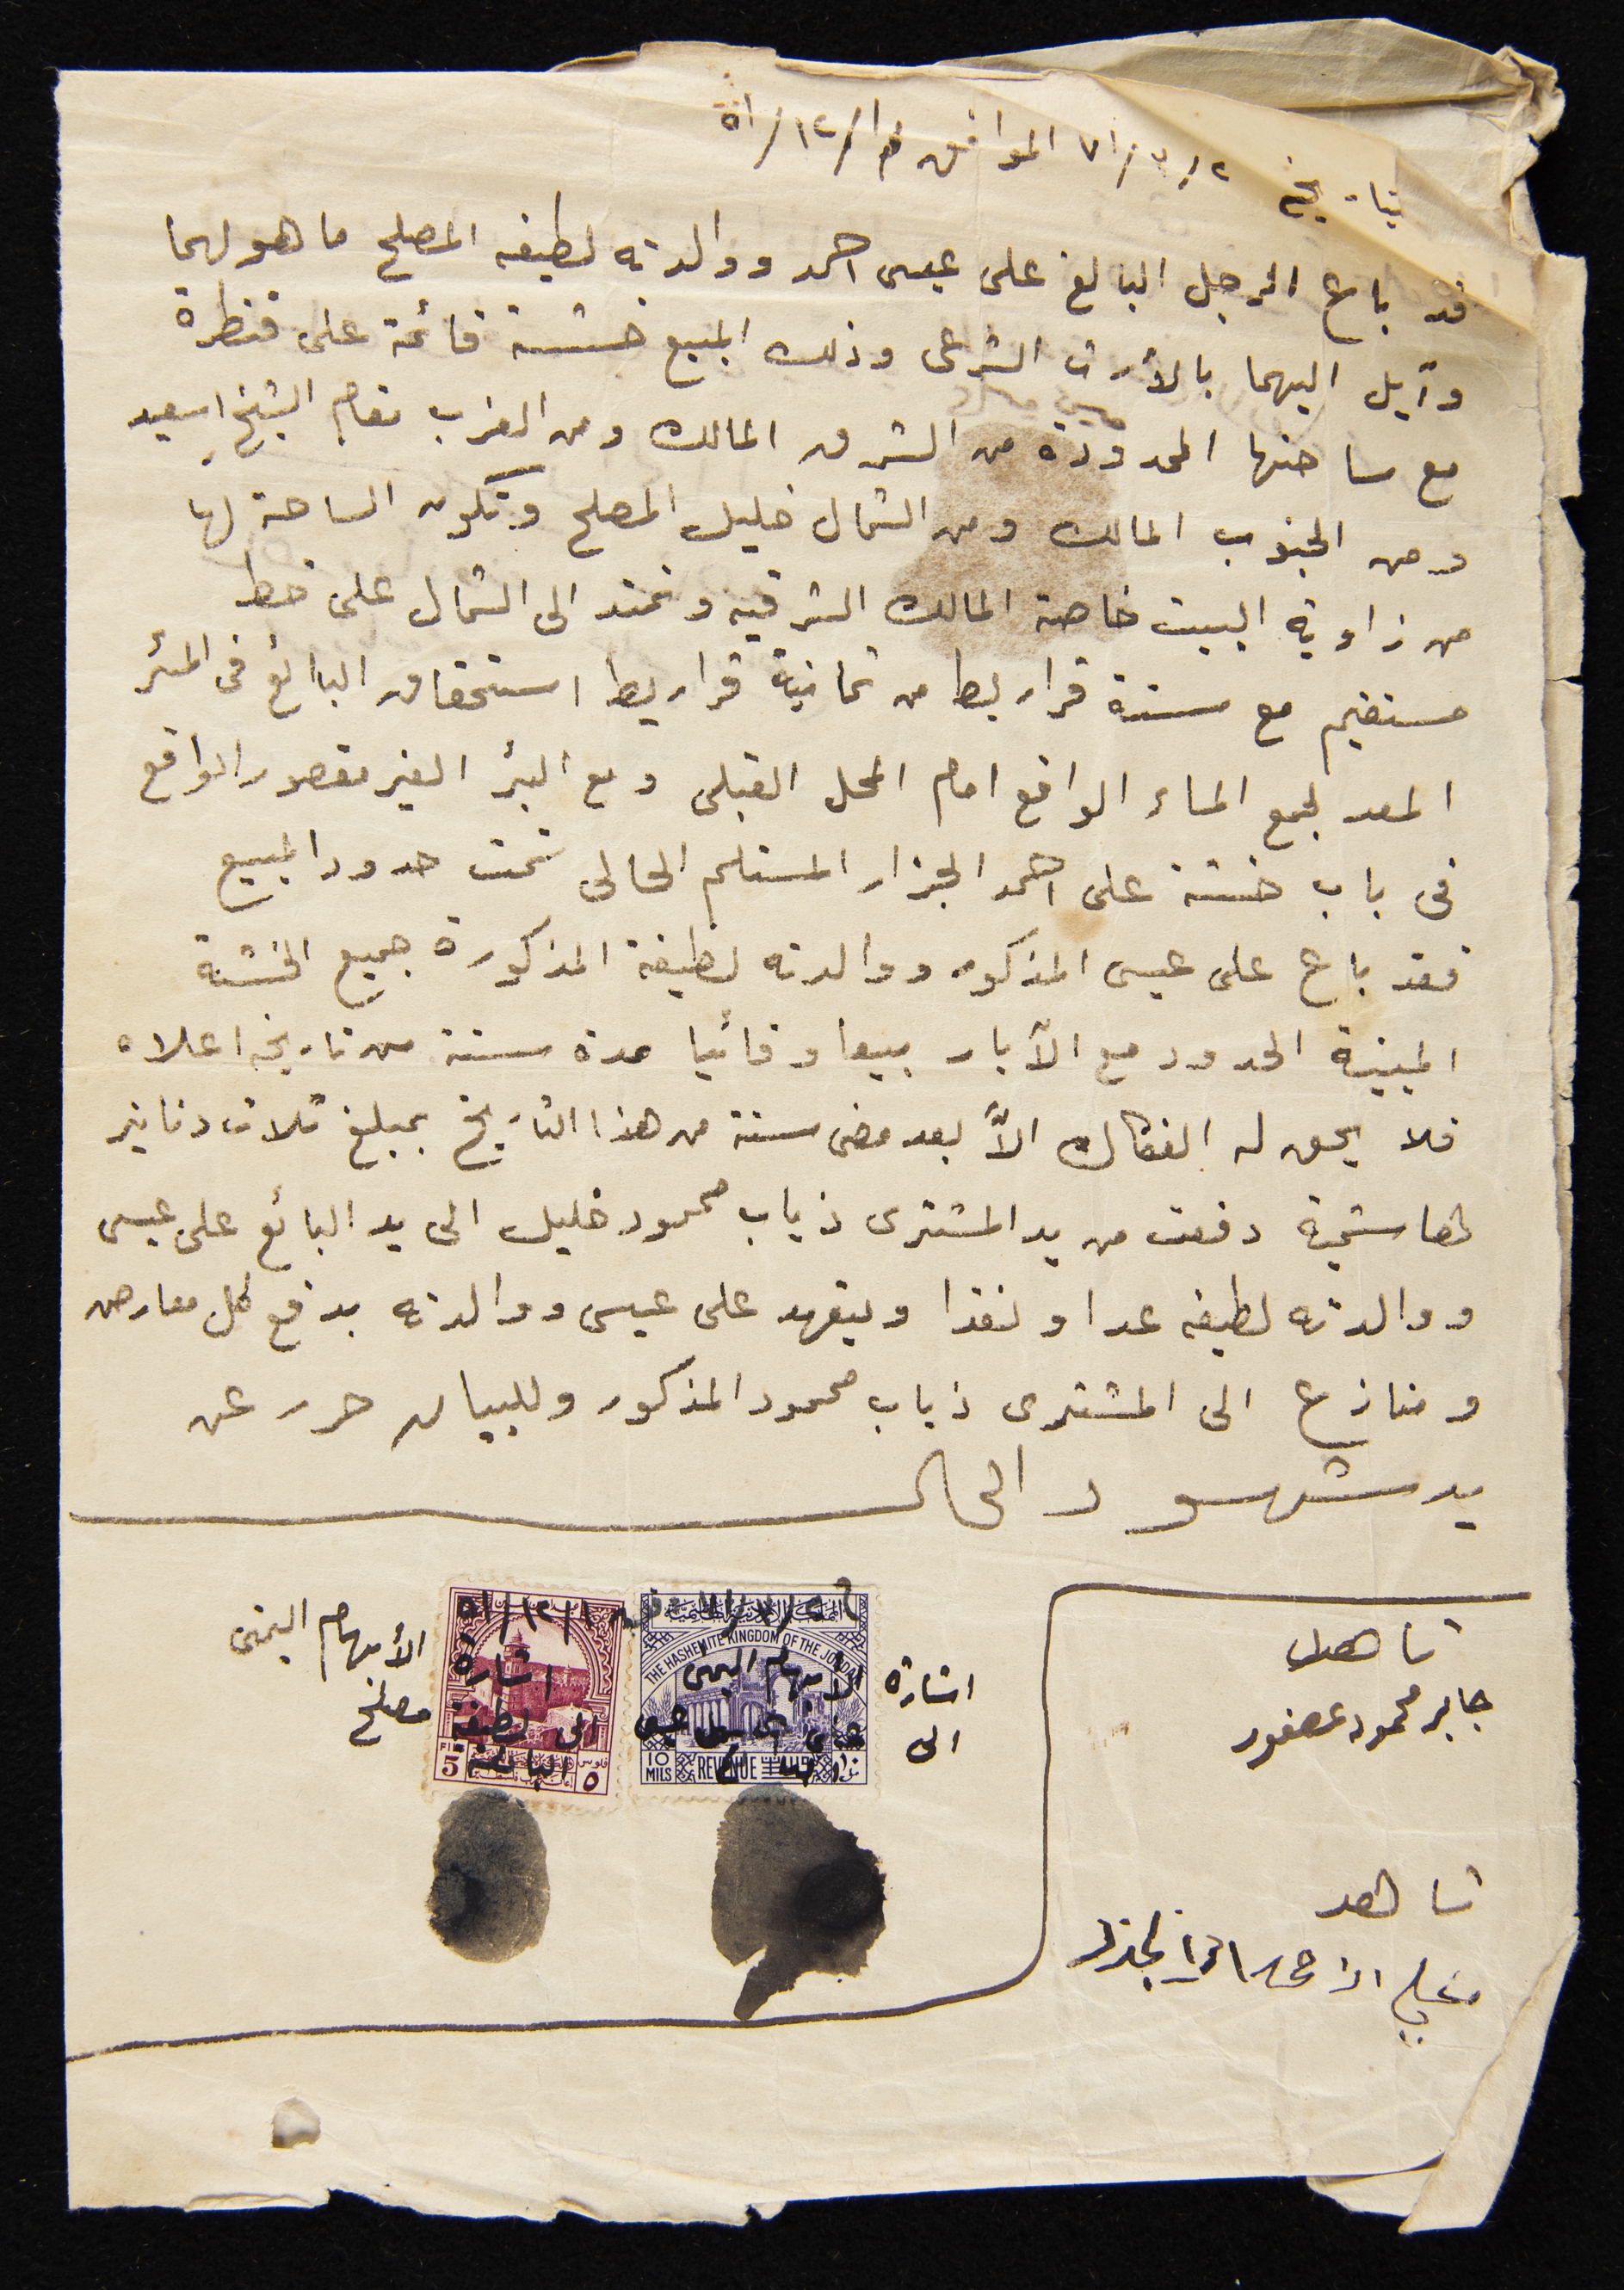 بتاريخ ٢/٣/٧١ الموافق ١/١٢/٥١
قد باع الرجل البالغ على عيسى احمد ووالدته لطيفه المصلح ما هو لهما
وآيل اليهما بالأرث الشرعى وذلك المبيع خشة قائمة على قنطرة
مع ساحتها المحدودة من الشرق المالك ومن الغرب مقام الشيخ اسعيد
ومن الجنوب المالك ومن الشمال خليل المصلح وتكون الساحة لها
من زاوية البيت خاصة المالك الشرقيه وتمتد الى الشمال على خط
مستقيم مع ستة قراريط من ثمانية قراريط استحقاق البائع فى البئر
المعد لجمع الماء الواقع امام المحل القبلى ومع البئر الغير مقصور الواقع
فى باب خشة على احمد الجزار المستلم الحالى تمت حدود المبيع
فقد باع على عيسى المذكور ووالدته لطيفة المذكورة جميع الخشة
المبينة الحدود مع الآبار بيعا وفائيا مدة سنة من تاريخه اعلاه
فلا يحق له الفكاك الاّ بعد مضى سنة من هذا التاريخ بمبلغ ثلاث دنانير
هاشمية دفعت من يد المشترى ذياب محمود خليل الى يد البائع على عيسى
ووالدته لطيفه عدا ونقدا ويتعهد على عيسى ووالدته بدفع كل معارض
ومنازع الى المشترى ذياب محمود المذكور وللبيان حرر عن
يد شهود الحال
شاهد
جابر محمود عصفور
شاهد
على احمد الجزار
اشارة
الى
المملكة الاردنية الهاشمية
THE HASHEMITE KINGDOM OF THE JORDAN
الابهام اليمنى
على عيسى
البائع
10 MILS
REVENUE
١/١٢/٥١
اشارة
الى لطيفة
البائعة
5
فلوس ٥
الأبهام اليمنى
مصلح